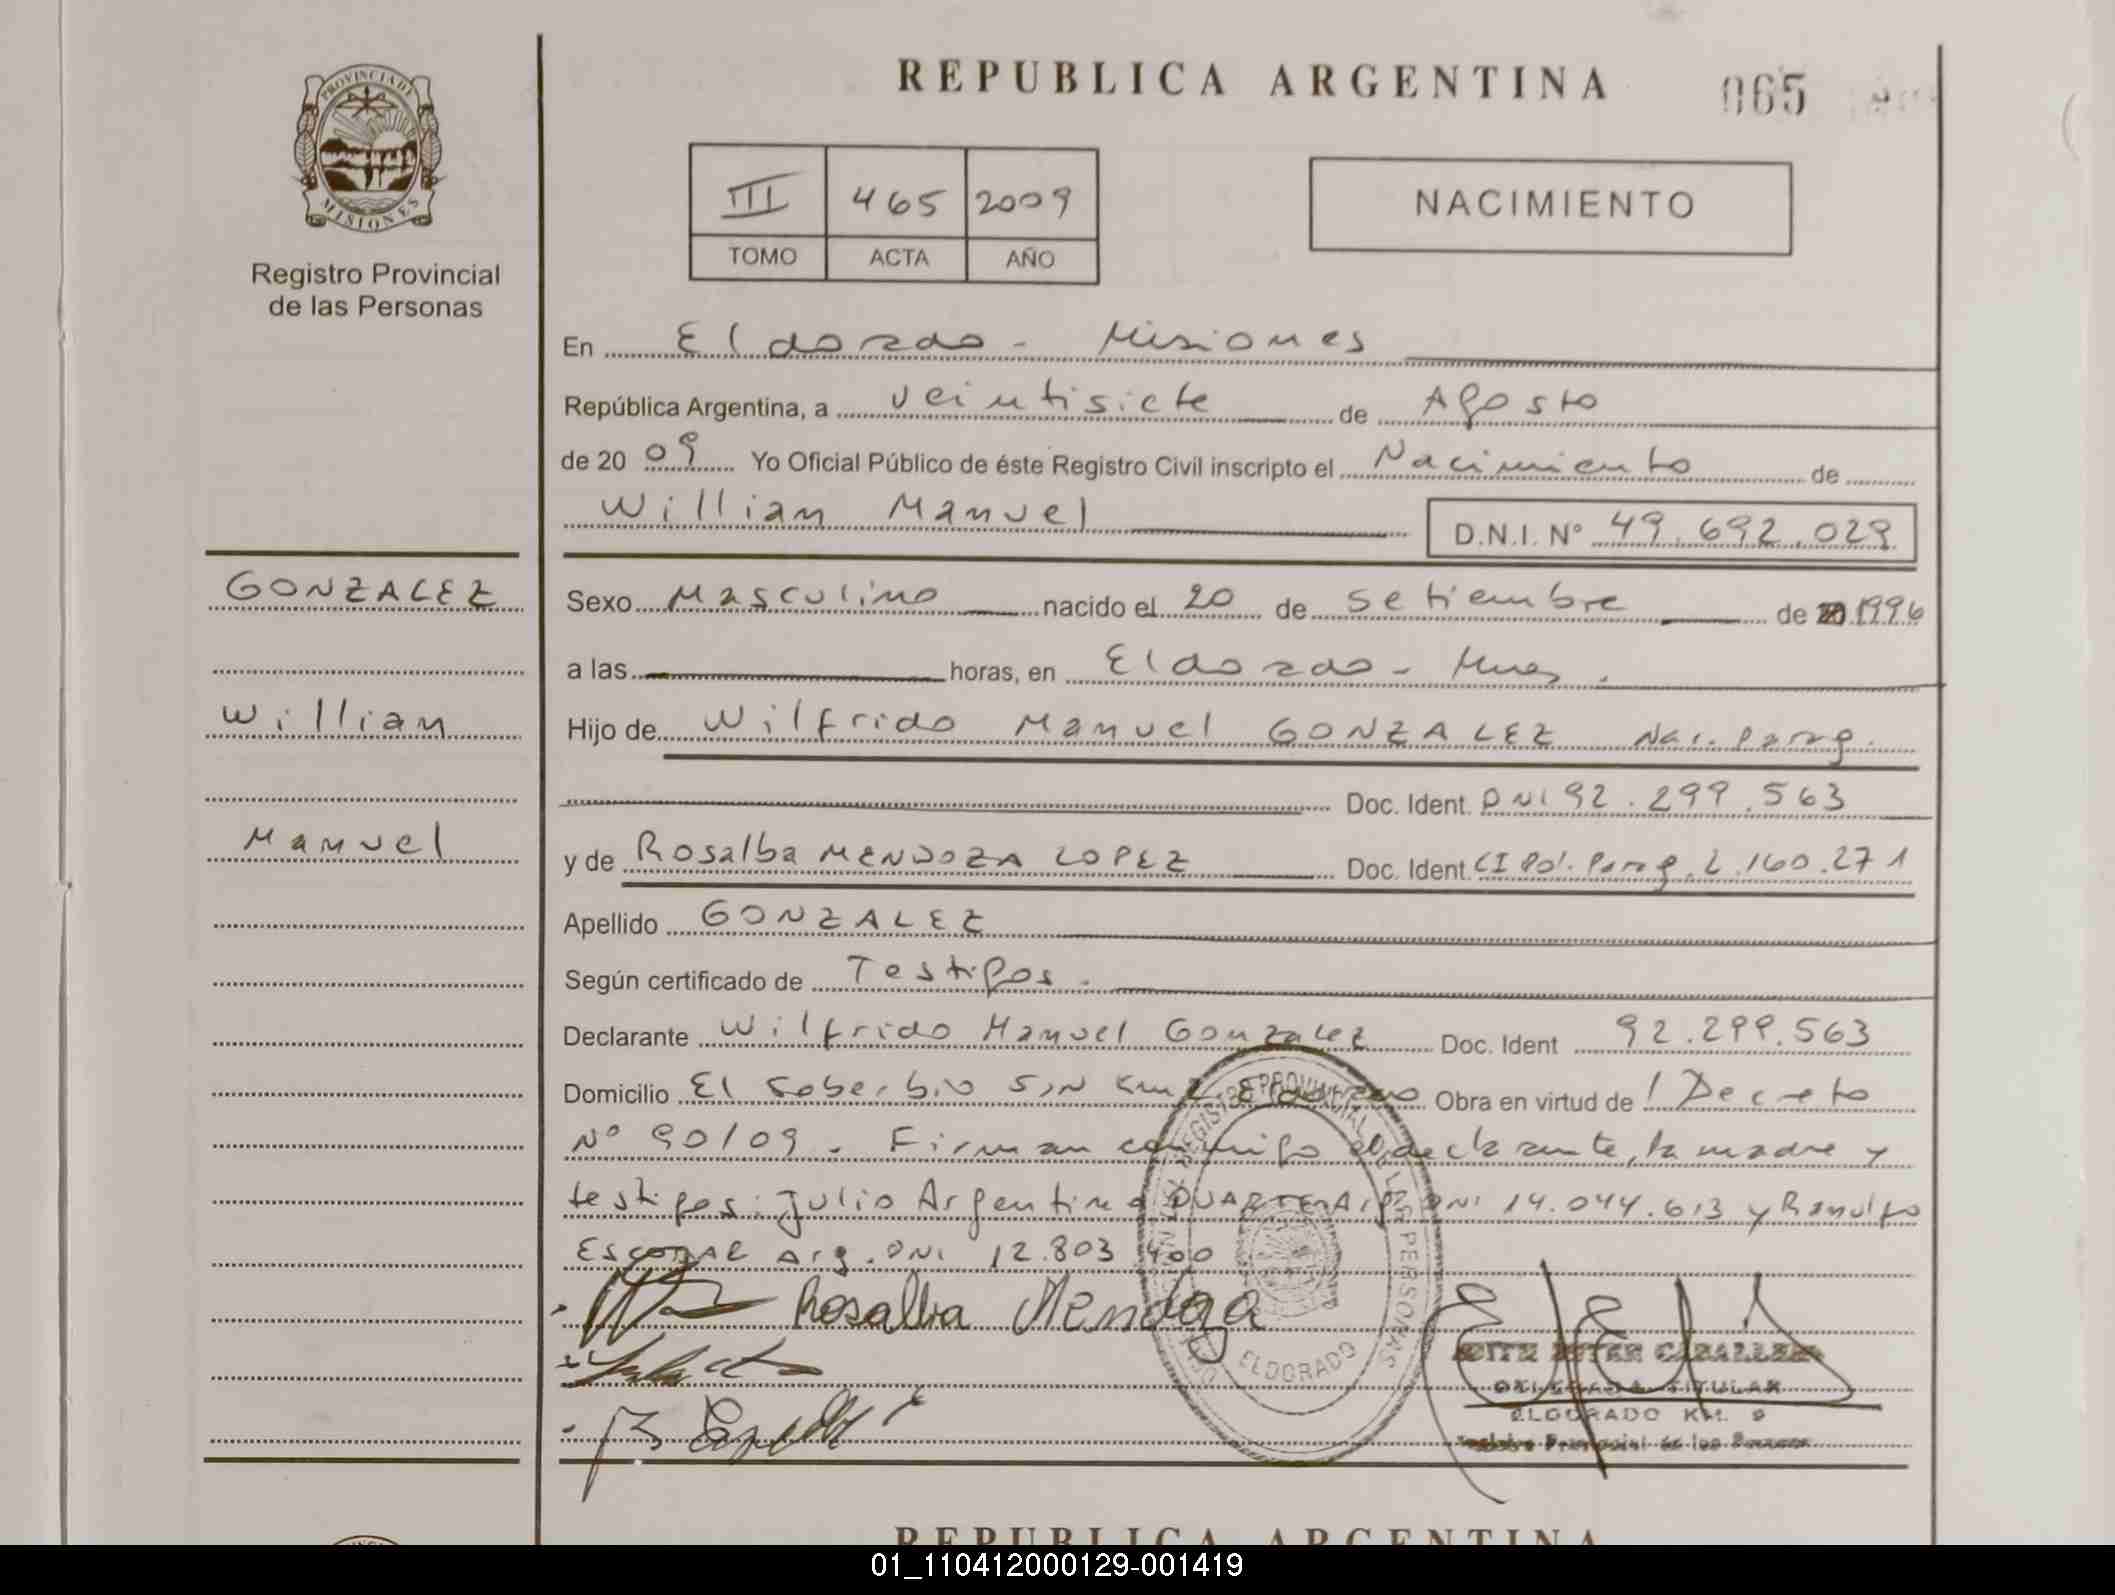 REPUBLICA ARGENTINA
065
PROVINCIA DE
MISIONES
Registro Provincial
de las Personas
III 465 2009
TOMO ACTA AÑO
NACIMIENTO
En Eldorado - Misiones
República Argentina, a veintisiete de Agosto
de 20 09 Yo Oficial Público de éste Registro Civil inscripto el Nacimiento de
Willian Manuel D.N.I. Nº 49.692.029
GONZALEZ
Willian
Manuel
Sexo Masculino nacido el 20 de Setiembre de 1996
a las horas, en Eldorado - Mnes.
Hijo de Wilfrido Manuel GONZALEZ Nac. Parag.
Doc. Ident. DNI 92.299.563
y de Rosalba MENDOZA LOPEZ Doc. Ident. CI Pol. Parag. 2.160.271
Apellido GONZALEZ
Según certificado de Testigos.
Declarante Wilfrido Manuel Gonzalez Doc. Ident 92.299.563
Domicilio El Soberbio S/N Km 2 Eldorado Obra en virtud de Decreto
Nº 90/09 - Firman conmigo el declarante, la madre y
testigos: Julio Argentino DNI 14.044.613 y Ranulfo
ESCOBAR Arg. DNI 12.803.400
Rosalba Mendoza
REGISTRO PROVINCIAL DE LAS PERSONAS
ELDORADO
CABALLERO
DELEGADA TITULAR
ELDORADO KM. 9
Registro Provincial de las Personas
REPUBLICA ARGENTINA
01_110412000129-001419